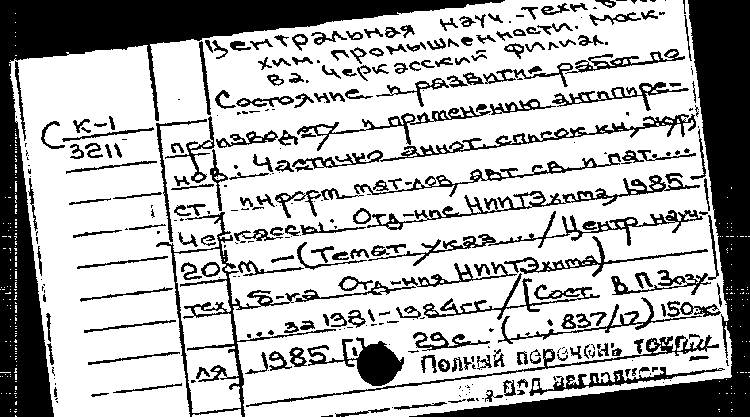 Центральная науч.-техн. б-ка
хим. промышленности. Моск-
ва. Черкасский филиал.
Состояние и развитие работ по
С К-1
3211
производству и применению антипире-
нов: Частично аннот. список кн., журн.
ст., информ. мат-лов, авт. св. и пат. ...
Черкассы: Отд-ние НИИТЭхима, 1985 -
20см. - (Темат. указ ... / Центр. науч.-
техн. б-ка Отд-ния НИИТЭхима)
... за 1981-1984гг. / [Сост. В.П. Зозу-
ля]. 1985. [1], 29с. : (...; 837/17) 150экз
Полный перечень
под заглавием